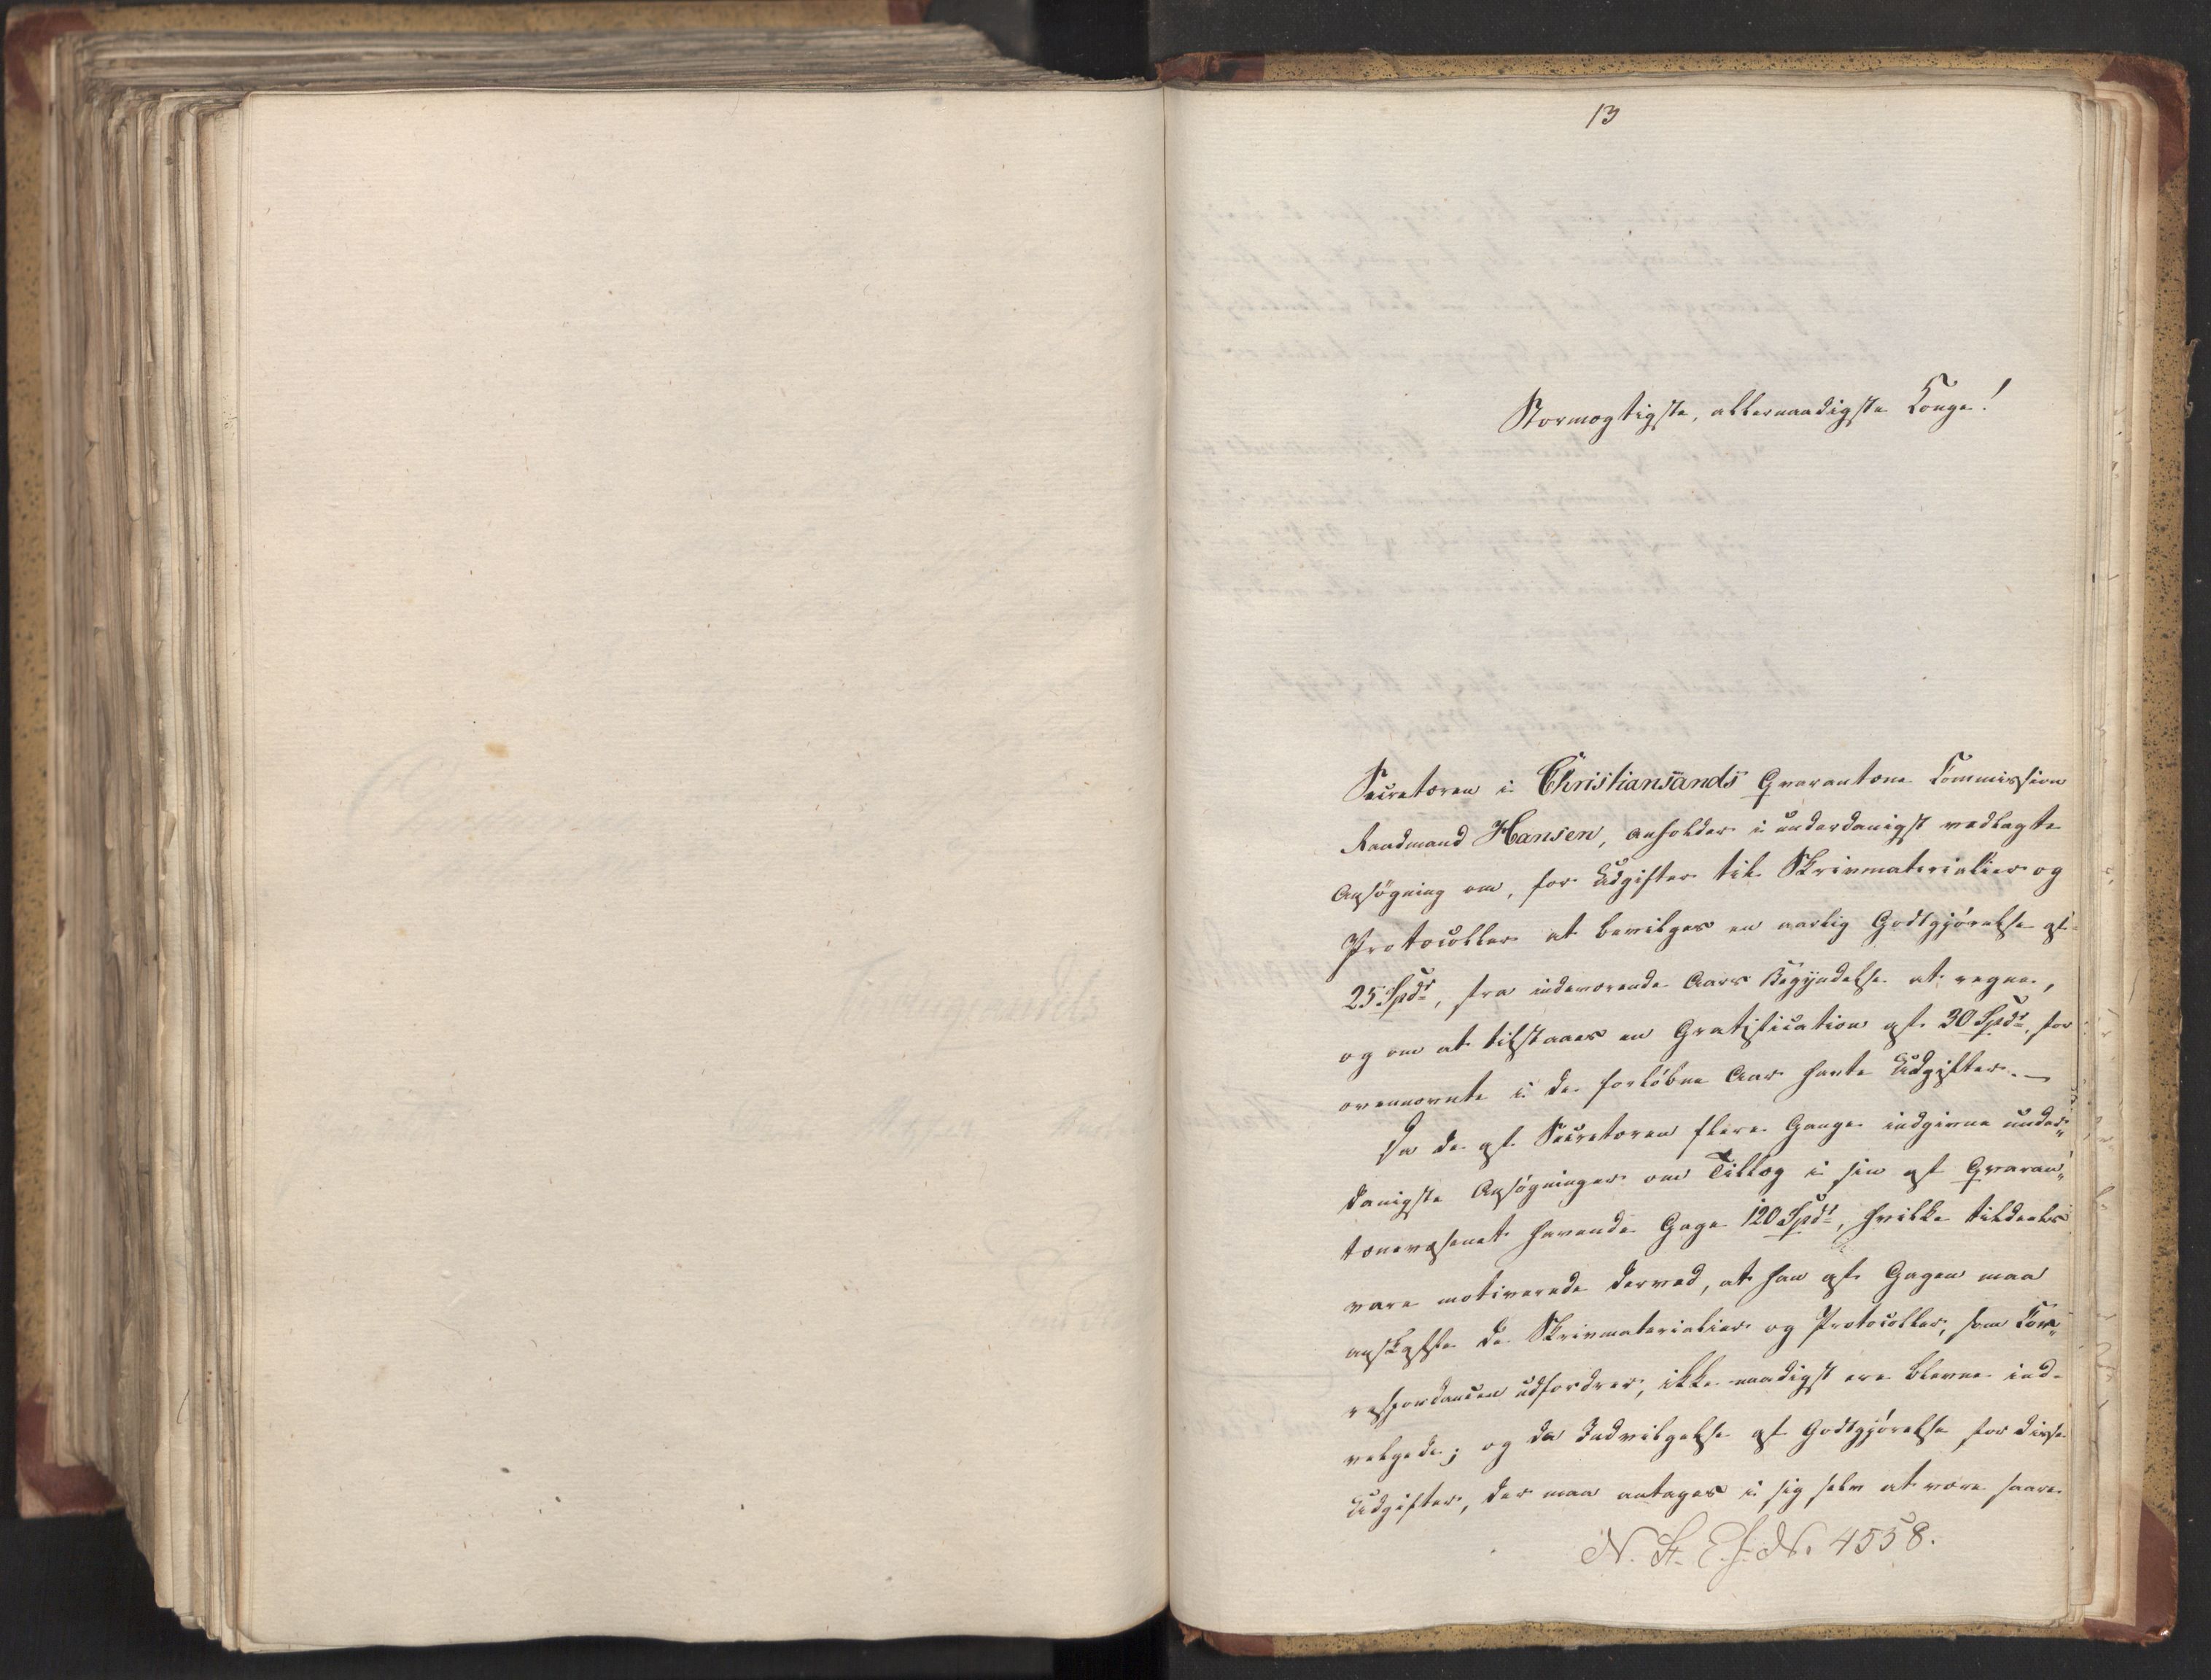 13
Stormægtigste, allernaadigste Konge!
Secretæren i Christiansands Qvarantæne Commission
Raadmand Hansen, anholder i underdanigst vedlagte
Ansøgning om, for Udgifter til Skrivmaterialier og
Protocoller at bevilges en aarlig Godtgjørelse af
25 Spdr, fra indeværende Aars Begyndelse at regne,
og om at tilstaaes en Gratification af 30 Spdr, for
ovennævnte i de forløbne Aar havte Udgifter.—
Da de af Secretæren flere Gange indgivne under„
danigste Ansøgninger om Tillæg i sin af Qvaran„
tænevæsenet havende Gage 120 Spdr, hvilke tildeels
vare motiverede derved, at han af Gagen maa
anskaffe de Skrivmaterialier og Protocoller, som Cor„
respondancen udfordrer, ikke naadigst ere blevne ind-
velgede; og da Indvilgelse af Godtgjørelse for disse
Udgifter, der maa antages i sig selv at være saare
N. St. E. J. No. 4558.